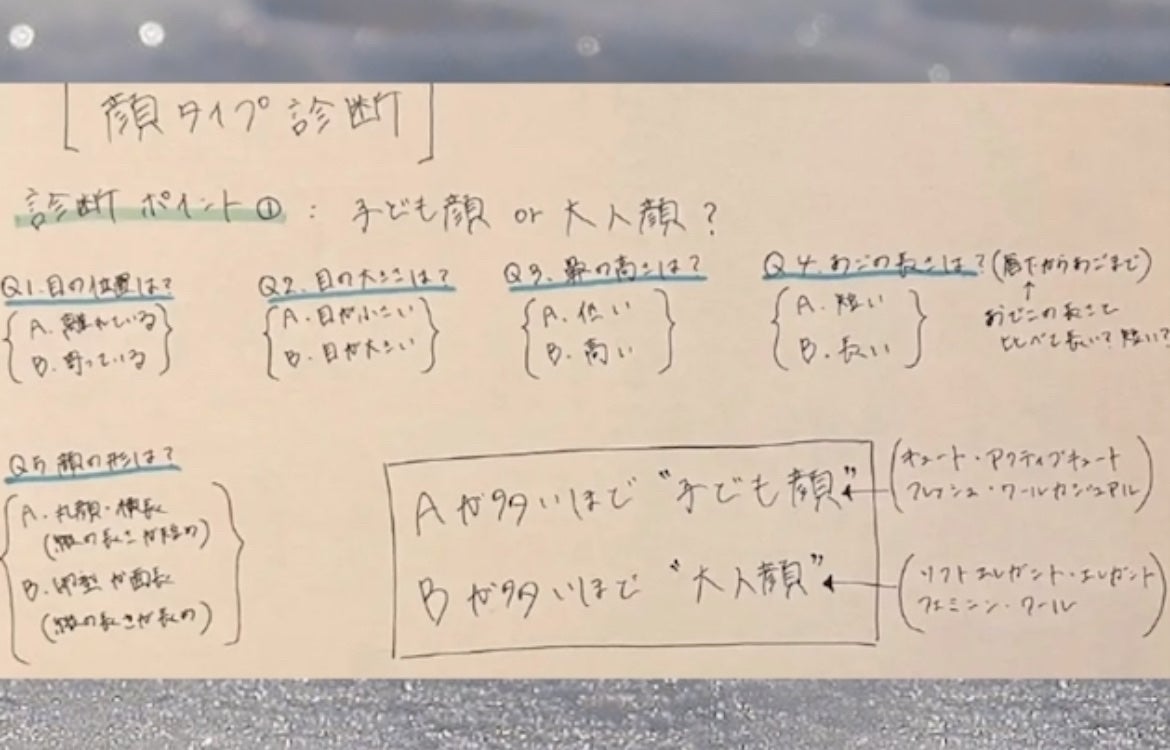 [顔タイプ診断]
診断ポイント①：子ども顔 or 大人顔？
Q1.目の位置は？
{A.離れている
B.寄っている}
Q2.目の大きさは？
{A.目が小さい
B.目が大きい}
Q3.鼻の高さは？
{A.低い
B.高い}
Q4.あごの長さは？(唇下からあごまで)
{A.短い
B.長い}
↑
おでこの長さと
比べて長い？短い？
Q5 顔の形は？
{A.丸顔・横長
(縦の長さが短め)
B.卵型か面長
(縦の長さが長め)}
Aが多いほど“子ども顔”
(キュート・アクティブキュート
フレッシュ・クールカジュアル)
Bが多いほど“大人顔”
(ソフトエレガント・エレガント
フェミニン・クール)